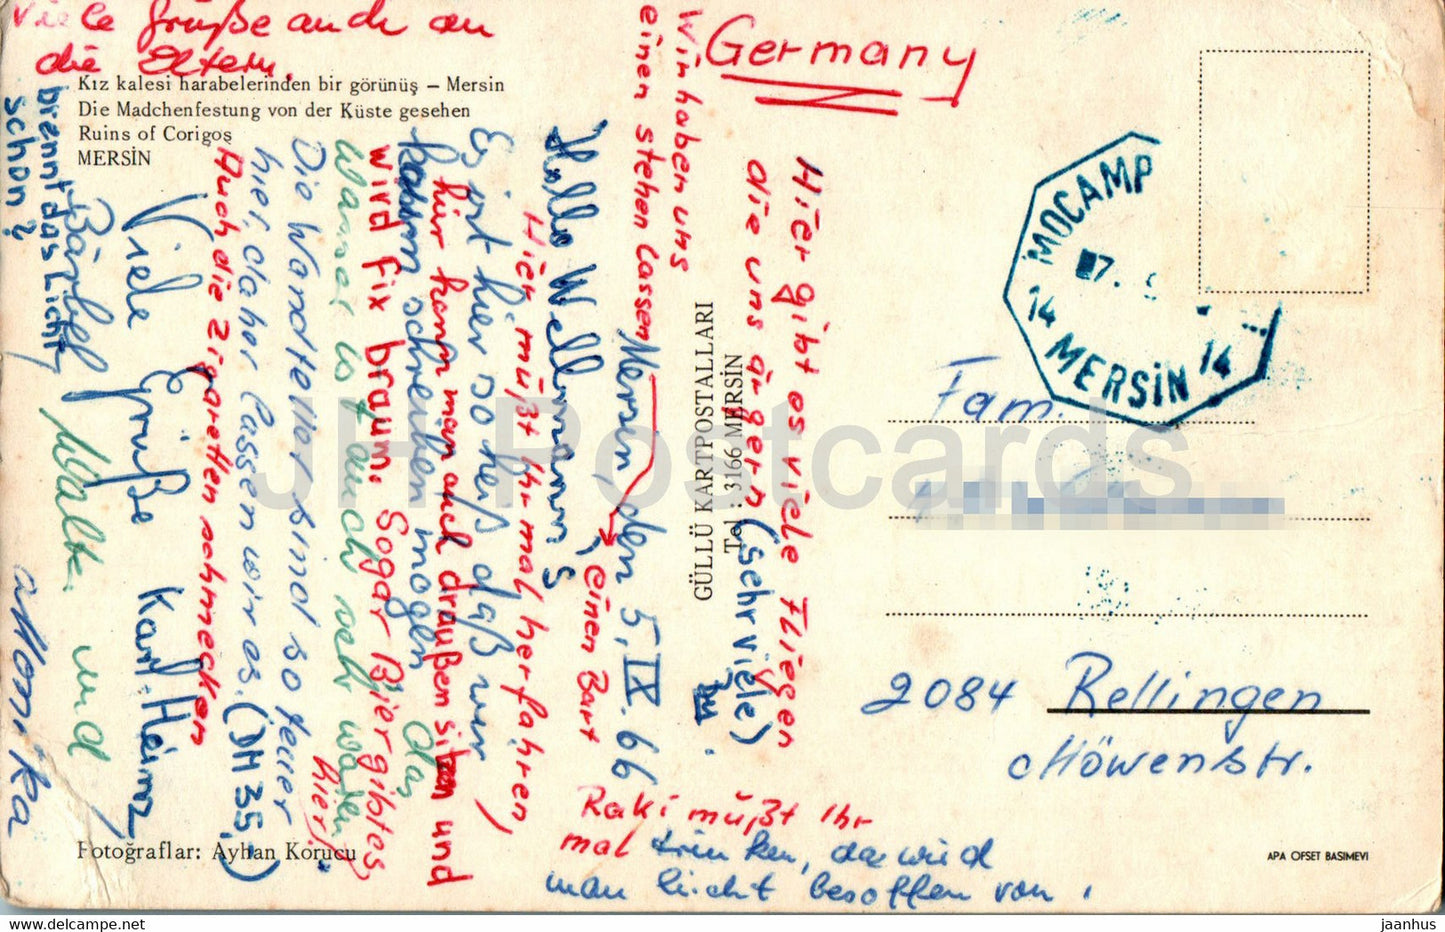 Viele Grüße auch an
die Eltern.
Kız kalesi harabelerinden bir görünüş – Mersin
Die Madchenfestung von der Küste gesehen
Ruins of Corigoş
MERSİN
Germany
Mersin, den 5. IX. 66
Hallo Wellmann's,
Hier müßt Ihr mal herfahren,
Es ist hier so heiß daß wir
kaum schreiben mögen
hier kann man auch draußen sitzen und
wird fix braun. Sogar Bier gibt es
hier!
Das
Wasser is t auch sehr warm
Die Wartelier sind so teuer
hier, daher lassen wir es. (DM 35,-)
Auch die Zigaretten schmecken
Viele Grüße Karl-Heinz
Bärbel Walter und
Monika
brennt das Licht
schon?
Wir haben uns
einen stehen lassen
einen Bart
Hier gibt es viele Fliegen
die uns ärgern (sehr viele)
Raki müßt Ihr
mal trinken, da wird
man leicht besoffen von.
GÜLLÜ KARTPOSTALLARI
Tel : 3166 MERSİN
MOCAMP
14 MERSİN 14
Fam.
2084 Rellingen
Möwenstr.
Fotoğraflar: Ayhan Korucu
APA OFSET BASIMEVI
JH Postcards
www.delcampe.net
jaanhus